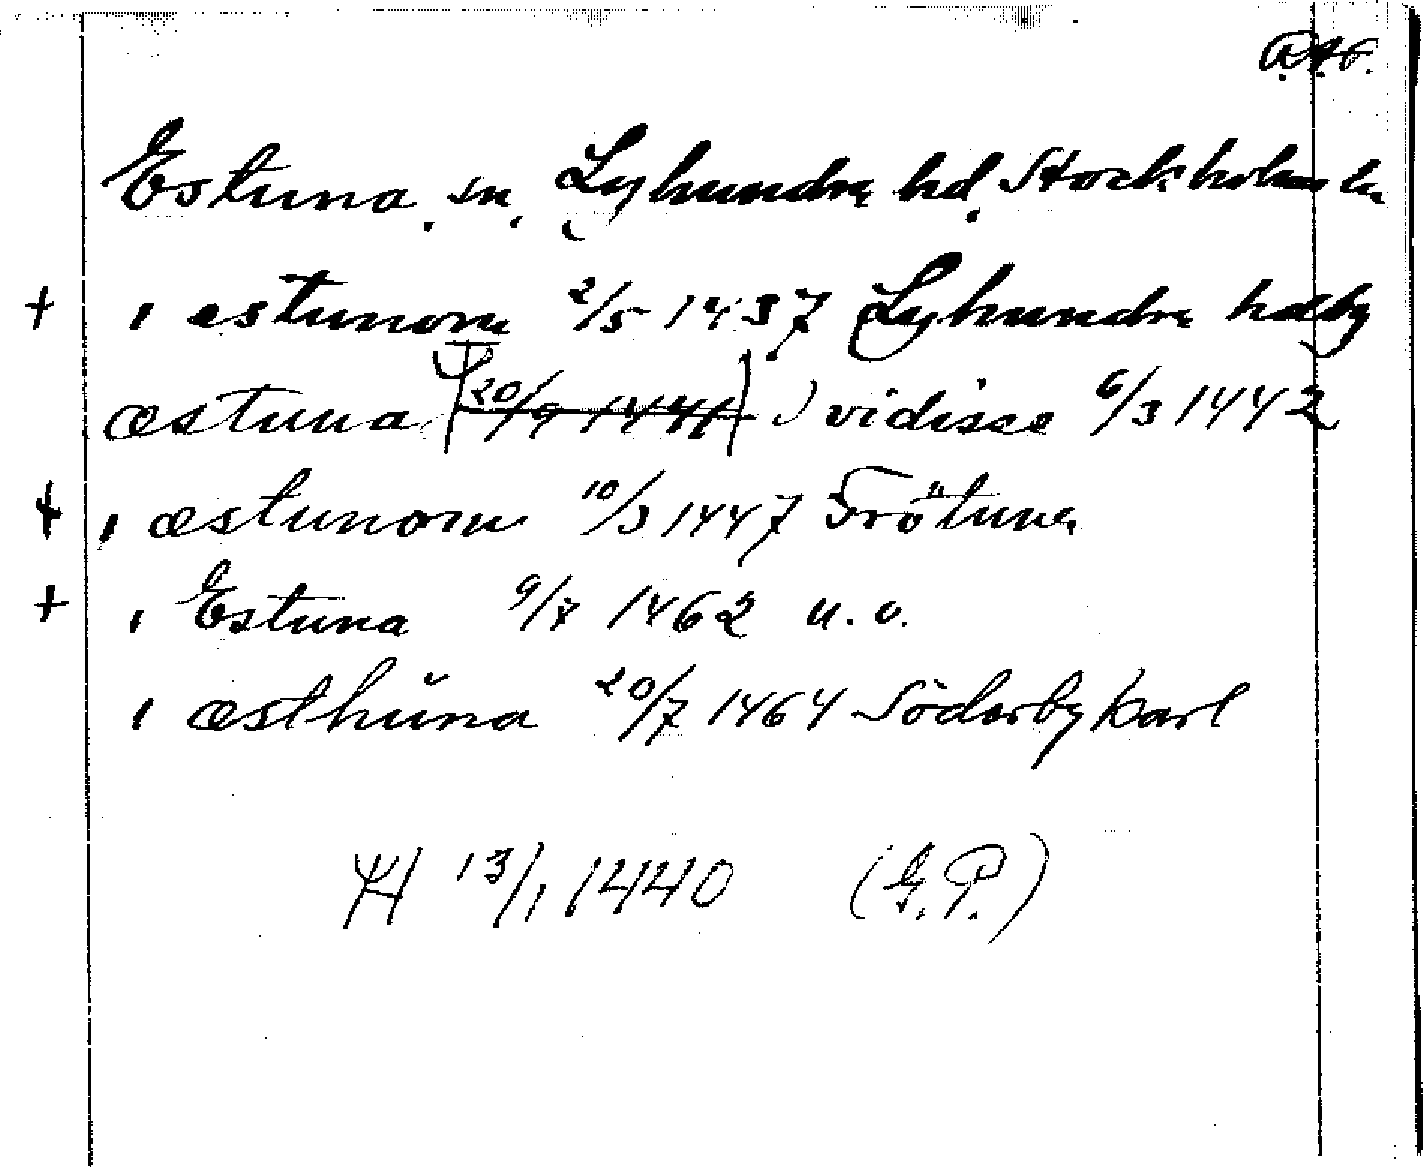 R.A.P.
Estuna sn, Lyhundra hd, Stockholms ln
+ i estunom 2/5 1437 Lyhundra hdsbg
æstuna (20/9 1441) vidisse 6/3 1442
+ i æstunom 10/3 1447 Frötuna
+ i Estuna 9/7 1462 u.o.
i æsthŭna 20/7 1464 Söderbykarl
13/1 1440 (G.P.)